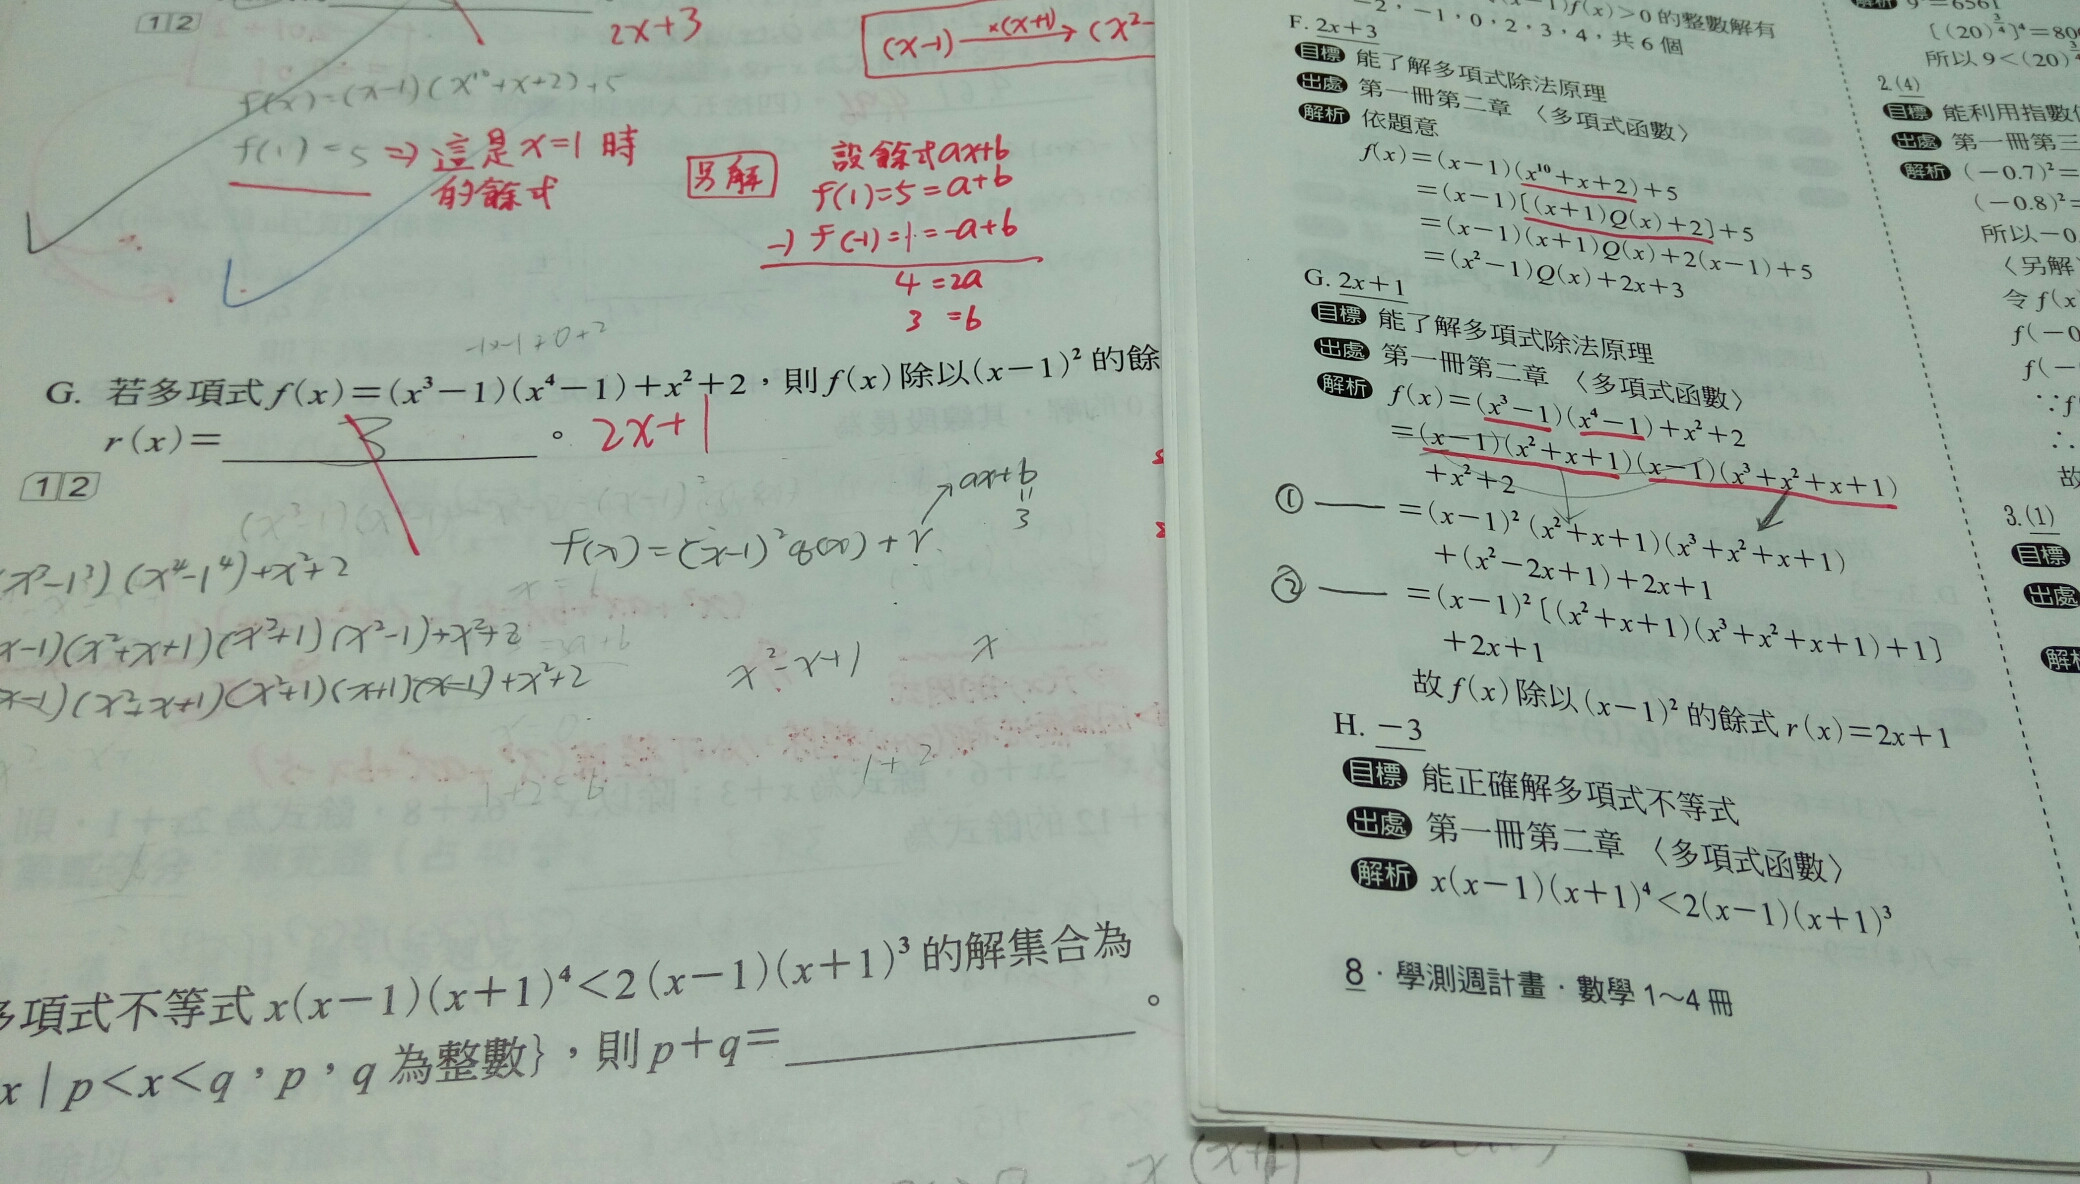 12
2x+3
(x-1) ×(x+1)→ (x²-
f(x)=(x-1)(x¹⁰+x+2)+5
f(1)=5⇒這是x=1時
的餘式
另解
設餘式ax+b
f(1)=5=a+b
-) f(-1)=1=-a+b
4=2a
3=b
G. 若多項式f(x)=(x³-1)(x⁴-1)+x²+2,則f(x)除以(x-1)²的餘
r(x)= 3 。 2x+1
12
f(x)=(x-1)²q(x)+r
ax+b
=
3
x³-1³)(x⁴-1⁴)+x²+2
x-1)(x²+x+1)(x²+1)(x²-1)+x²+2
x-1)(x²+x+1)(x²+1)(x+1)(x-1)+x²+2
x²-x+1
x
1+2
項式不等式x(x-1)(x+1)⁴<2(x-1)(x+1)³的解集合為
x|p<x<q,p,q為整數},則p+q= 。
-2,-1,0,2,3,4,共6個
-1)f(x)>0的整數解有
F. 2x+3
目標 能了解多項式除法原理
出處 第一冊第二章〈多項式函數〉
解析 依題意
f(x)=(x-1)(x¹⁰+x+2)+5
=(x-1)[(x+1)Q(x)+2]+5
=(x-1)(x+1)Q(x)+2(x-1)+5
=(x²-1)Q(x)+2x+3
G. 2x+1
目標 能了解多項式除法原理
出處 第一冊第二章〈多項式函數〉
解析 f(x)=(x³-1)(x⁴-1)+x²+2
=(x-1)(x²+x+1)(x-1)(x³+x²+x+1)
+x²+2
① =(x-1)²(x²+x+1)(x³+x²+x+1)
+(x²-2x+1)+2x+1
② =(x-1)²[(x²+x+1)(x³+x²+x+1)+1]
+2x+1
故f(x)除以(x-1)²的餘式r(x)=2x+1
H. -3
目標 能正確解多項式不等式
出處 第一冊第二章〈多項式函數〉
解析 x(x-1)(x+1)⁴<2(x-1)(x+1)³
8·學測週計畫·數學1~4冊
9 =6561
所以9<(20)
2.(4)
目標 能利用指數
出處 第一冊第三
解析 (-0.7)²=
(-0.8)²=
所以-0
〈另解
令f(x
f(-0
f(-
∵f
∴
故
3.(1)
目標
出處
解析